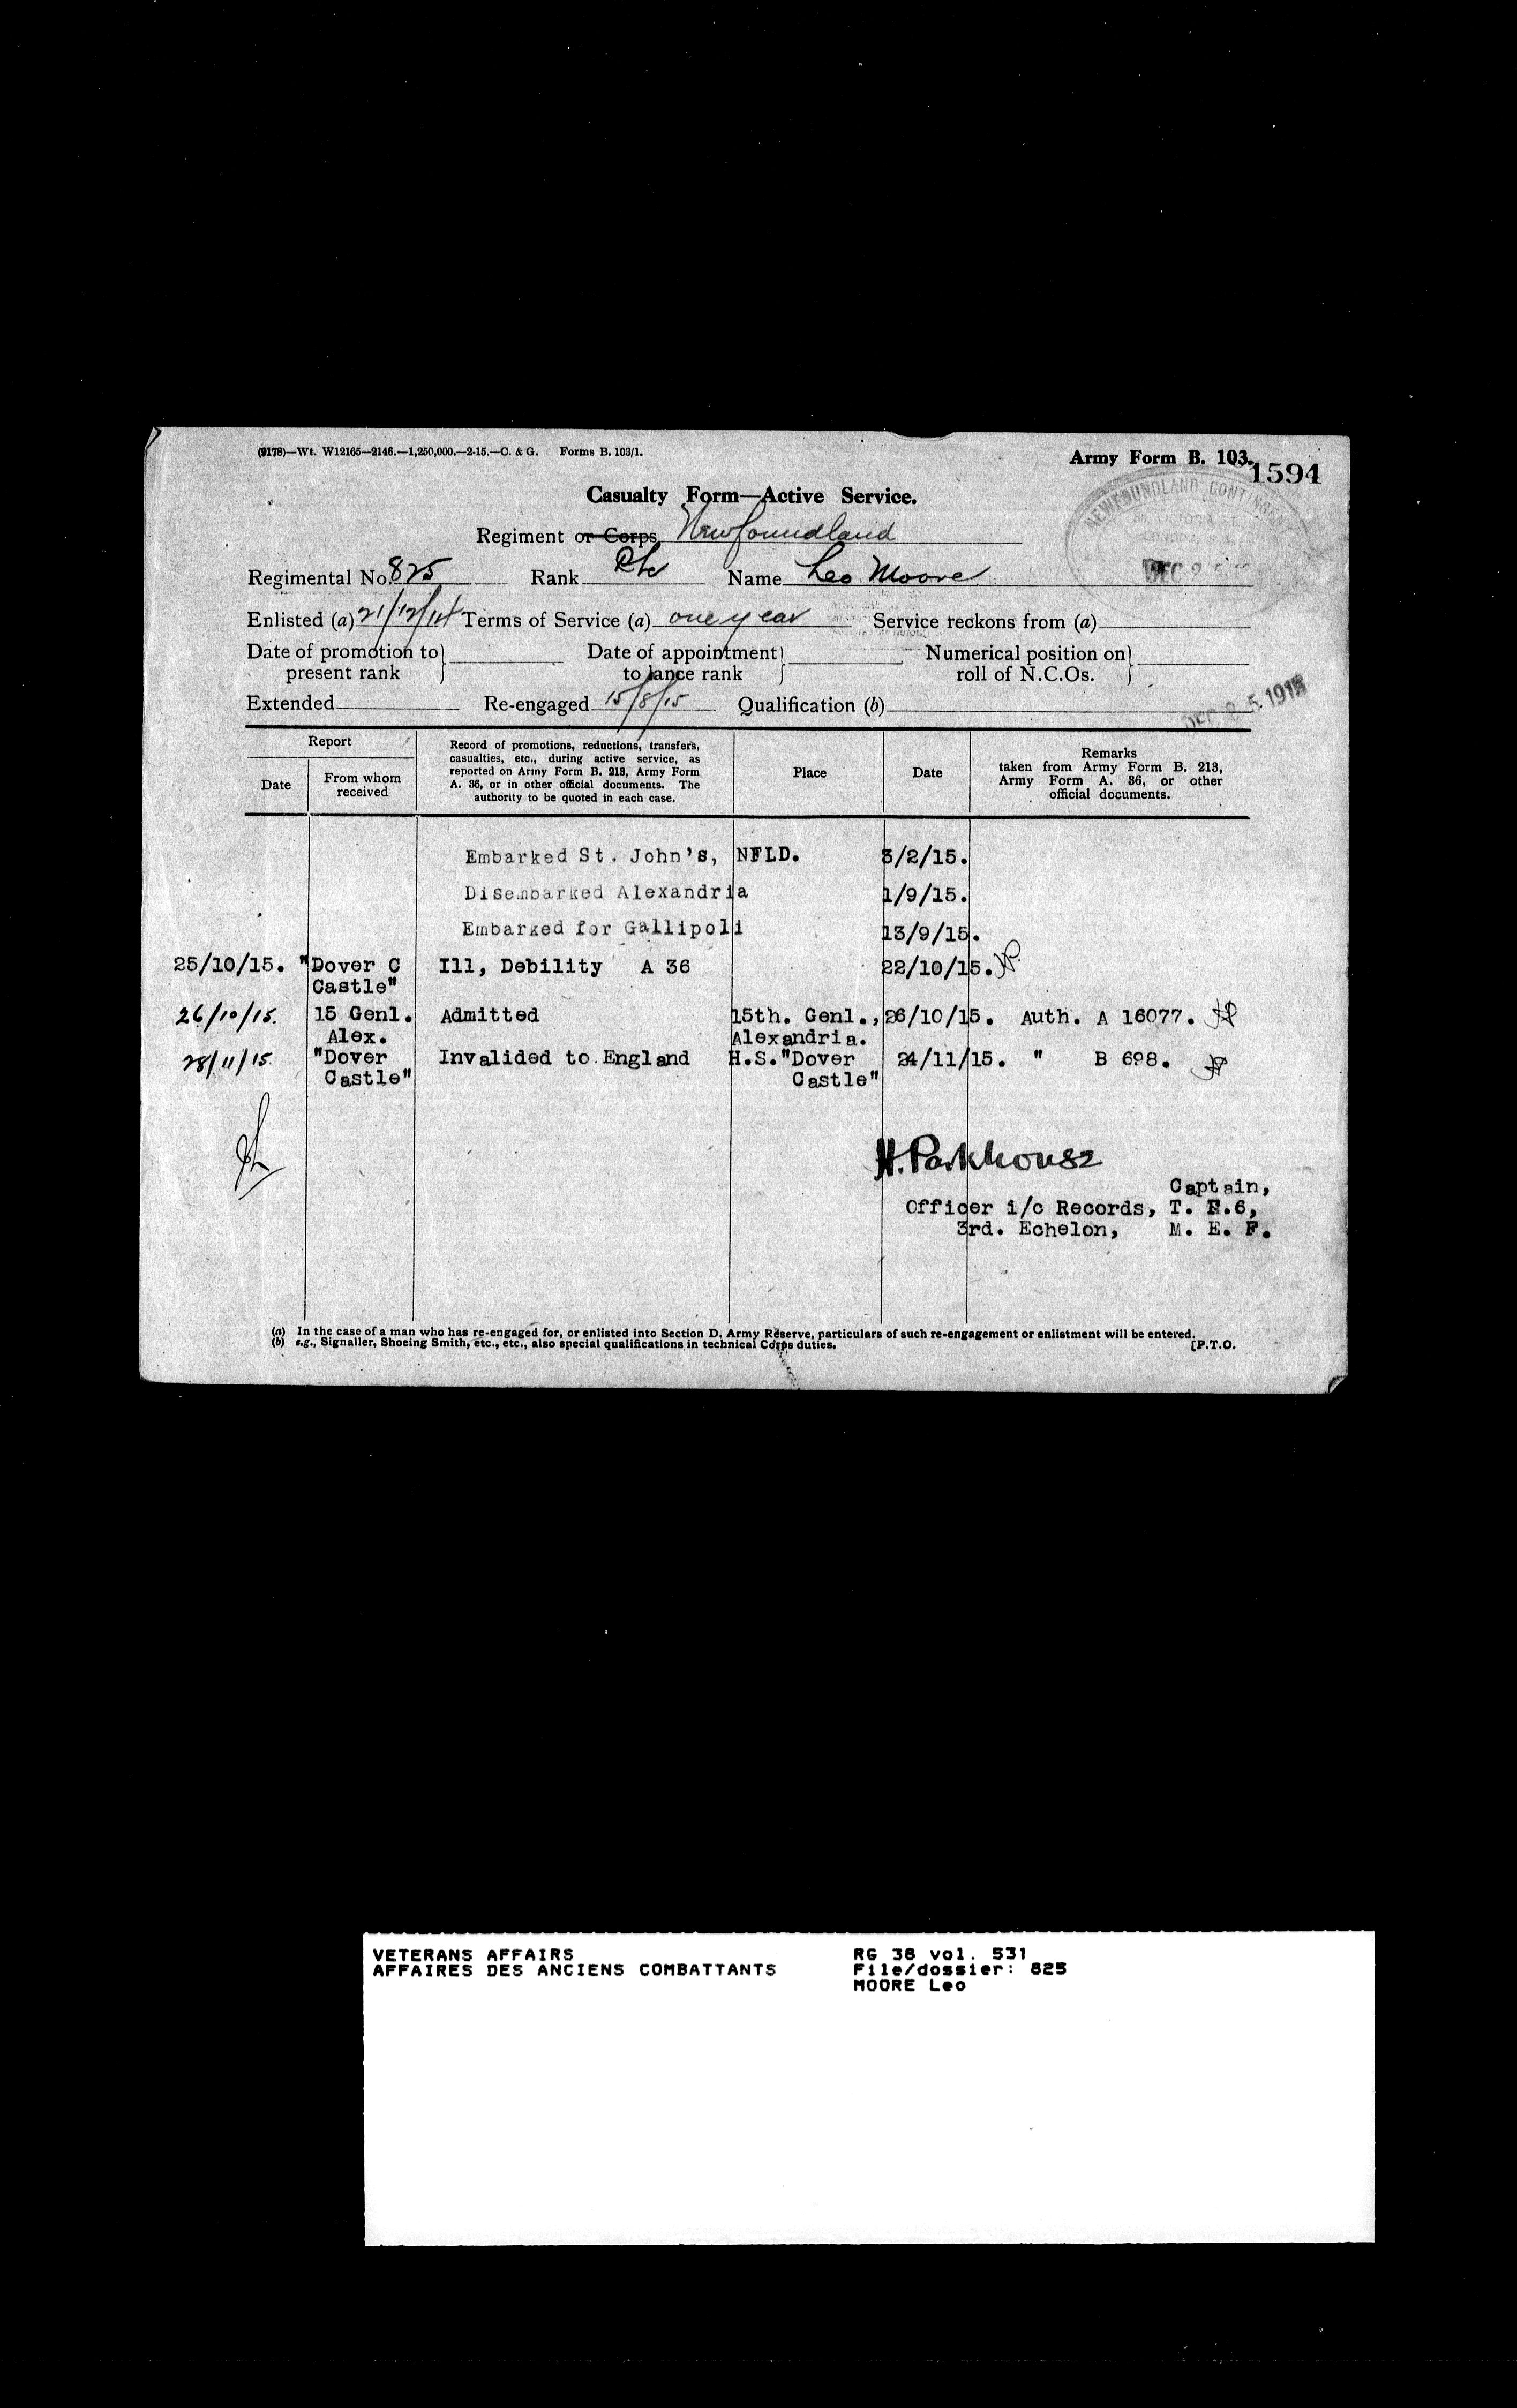 (9178)—Wt. W12165—2146.—1,250,000.—2-15.—C. & G. Forms B. 103/1.
Army Form B. 103.
1594
Casualty Form—Active Service.
NEWFOUNDLAND CONTINGENT
DEC 2
Regiment or Corps Newfoundland
Regimental No. 825 Rank Pte Name Leo Moore
Enlisted (a) 21/12/14 Terms of Service (a) one year Service reckons from (a)
Date of promotion to present rank } Date of appointment to lance rank } Numerical position on roll of N.C.Os. }
Extended Re-engaged 15/8/15 Qualification (b)
5. 1915
Report
Date
From whom received
Record of promotions, reductions, transfers,
casualties, etc., during active service, as
reported on Army Form B. 213, Army Form
A. 36, or in other official documents. The
authority to be quoted in each case.
Place
Date
Remarks
taken from Army Form B. 213,
Army Form A. 36, or other
official documents.
Embarked St. John's, NFLD. 3/2/15.
Disembarked Alexandria 1/9/15.
Embarked for Gallipoli 13/9/15.
25/10/15. "Dover C Ill, Debility A 36 22/10/15.
Castle"
26/10/15. 15 Genl. Admitted 15th. Genl., 26/10/15. Auth. A 16077.
Alex. Alexandria.
28/11/15. "Dover Invalided to England H.S."Dover 24/11/15. " B 698.
Castle" Castle"
H. Parkhouse
Captain,
Officer i/c Records, T. R.6,
3rd. Echelon, M. E. F.
(a) In the case of a man who has re-engaged for, or enlisted into Section D, Army Reserve, particulars of such re-engagement or enlistment will be entered.
(b) e.g., Signaller, Shoeing Smith, etc., etc., also special qualifications in technical Corps duties.
[P.T.O.
VETERANS AFFAIRS RG 38 vol. 531
AFFAIRES DES ANCIENS COMBATTANTS File/dossier: 825
MOORE Leo